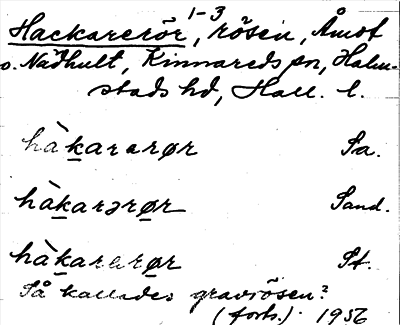 Hackarerör, 1-3 rösen, Åmot
o. Nädhult, Kinnareds sn, Halm-
stads hd, Hall. l.
hàkararør Sa.
hàkarərør Sand.
hàkararør St.
Så kallades gravrösen?
(forts.) 1956